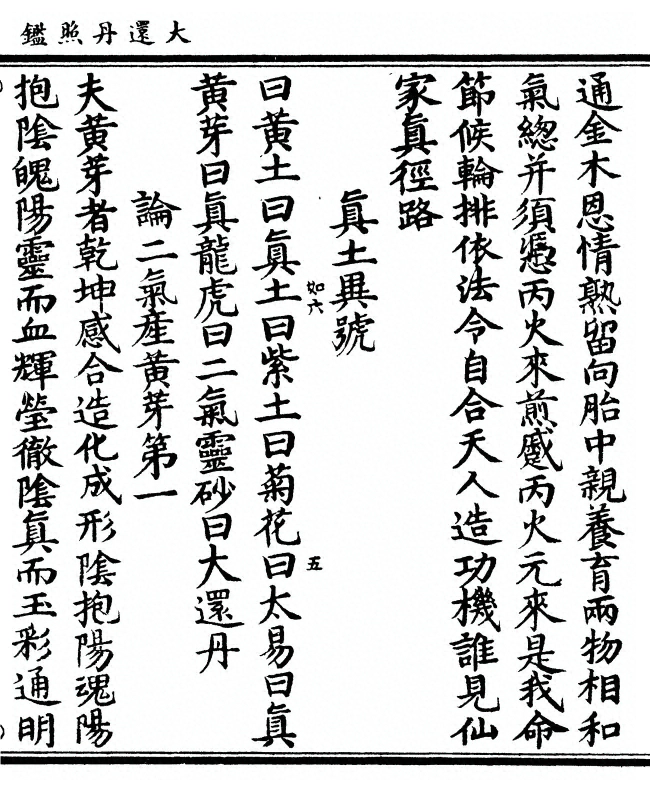 大還丹照鑑
通金木恩情熟留向胎中親養育兩物相和
氣總并須慿丙火來煎蹙丙火元來是我命
節候輪排依法令自合天人造功機誰見仙
家眞徑路
眞土異號
如六
曰黃土曰眞土曰紫土曰菊花曰太易曰眞
五
黃芽曰眞龍虎曰二氣靈砂曰大還丹
論二氣產黃芽第一
夫黃芽者乾坤感合造化成形陰抱陽魂陽
抱陰魄陽靈而血輝瑩徹陰眞而玉彩通明